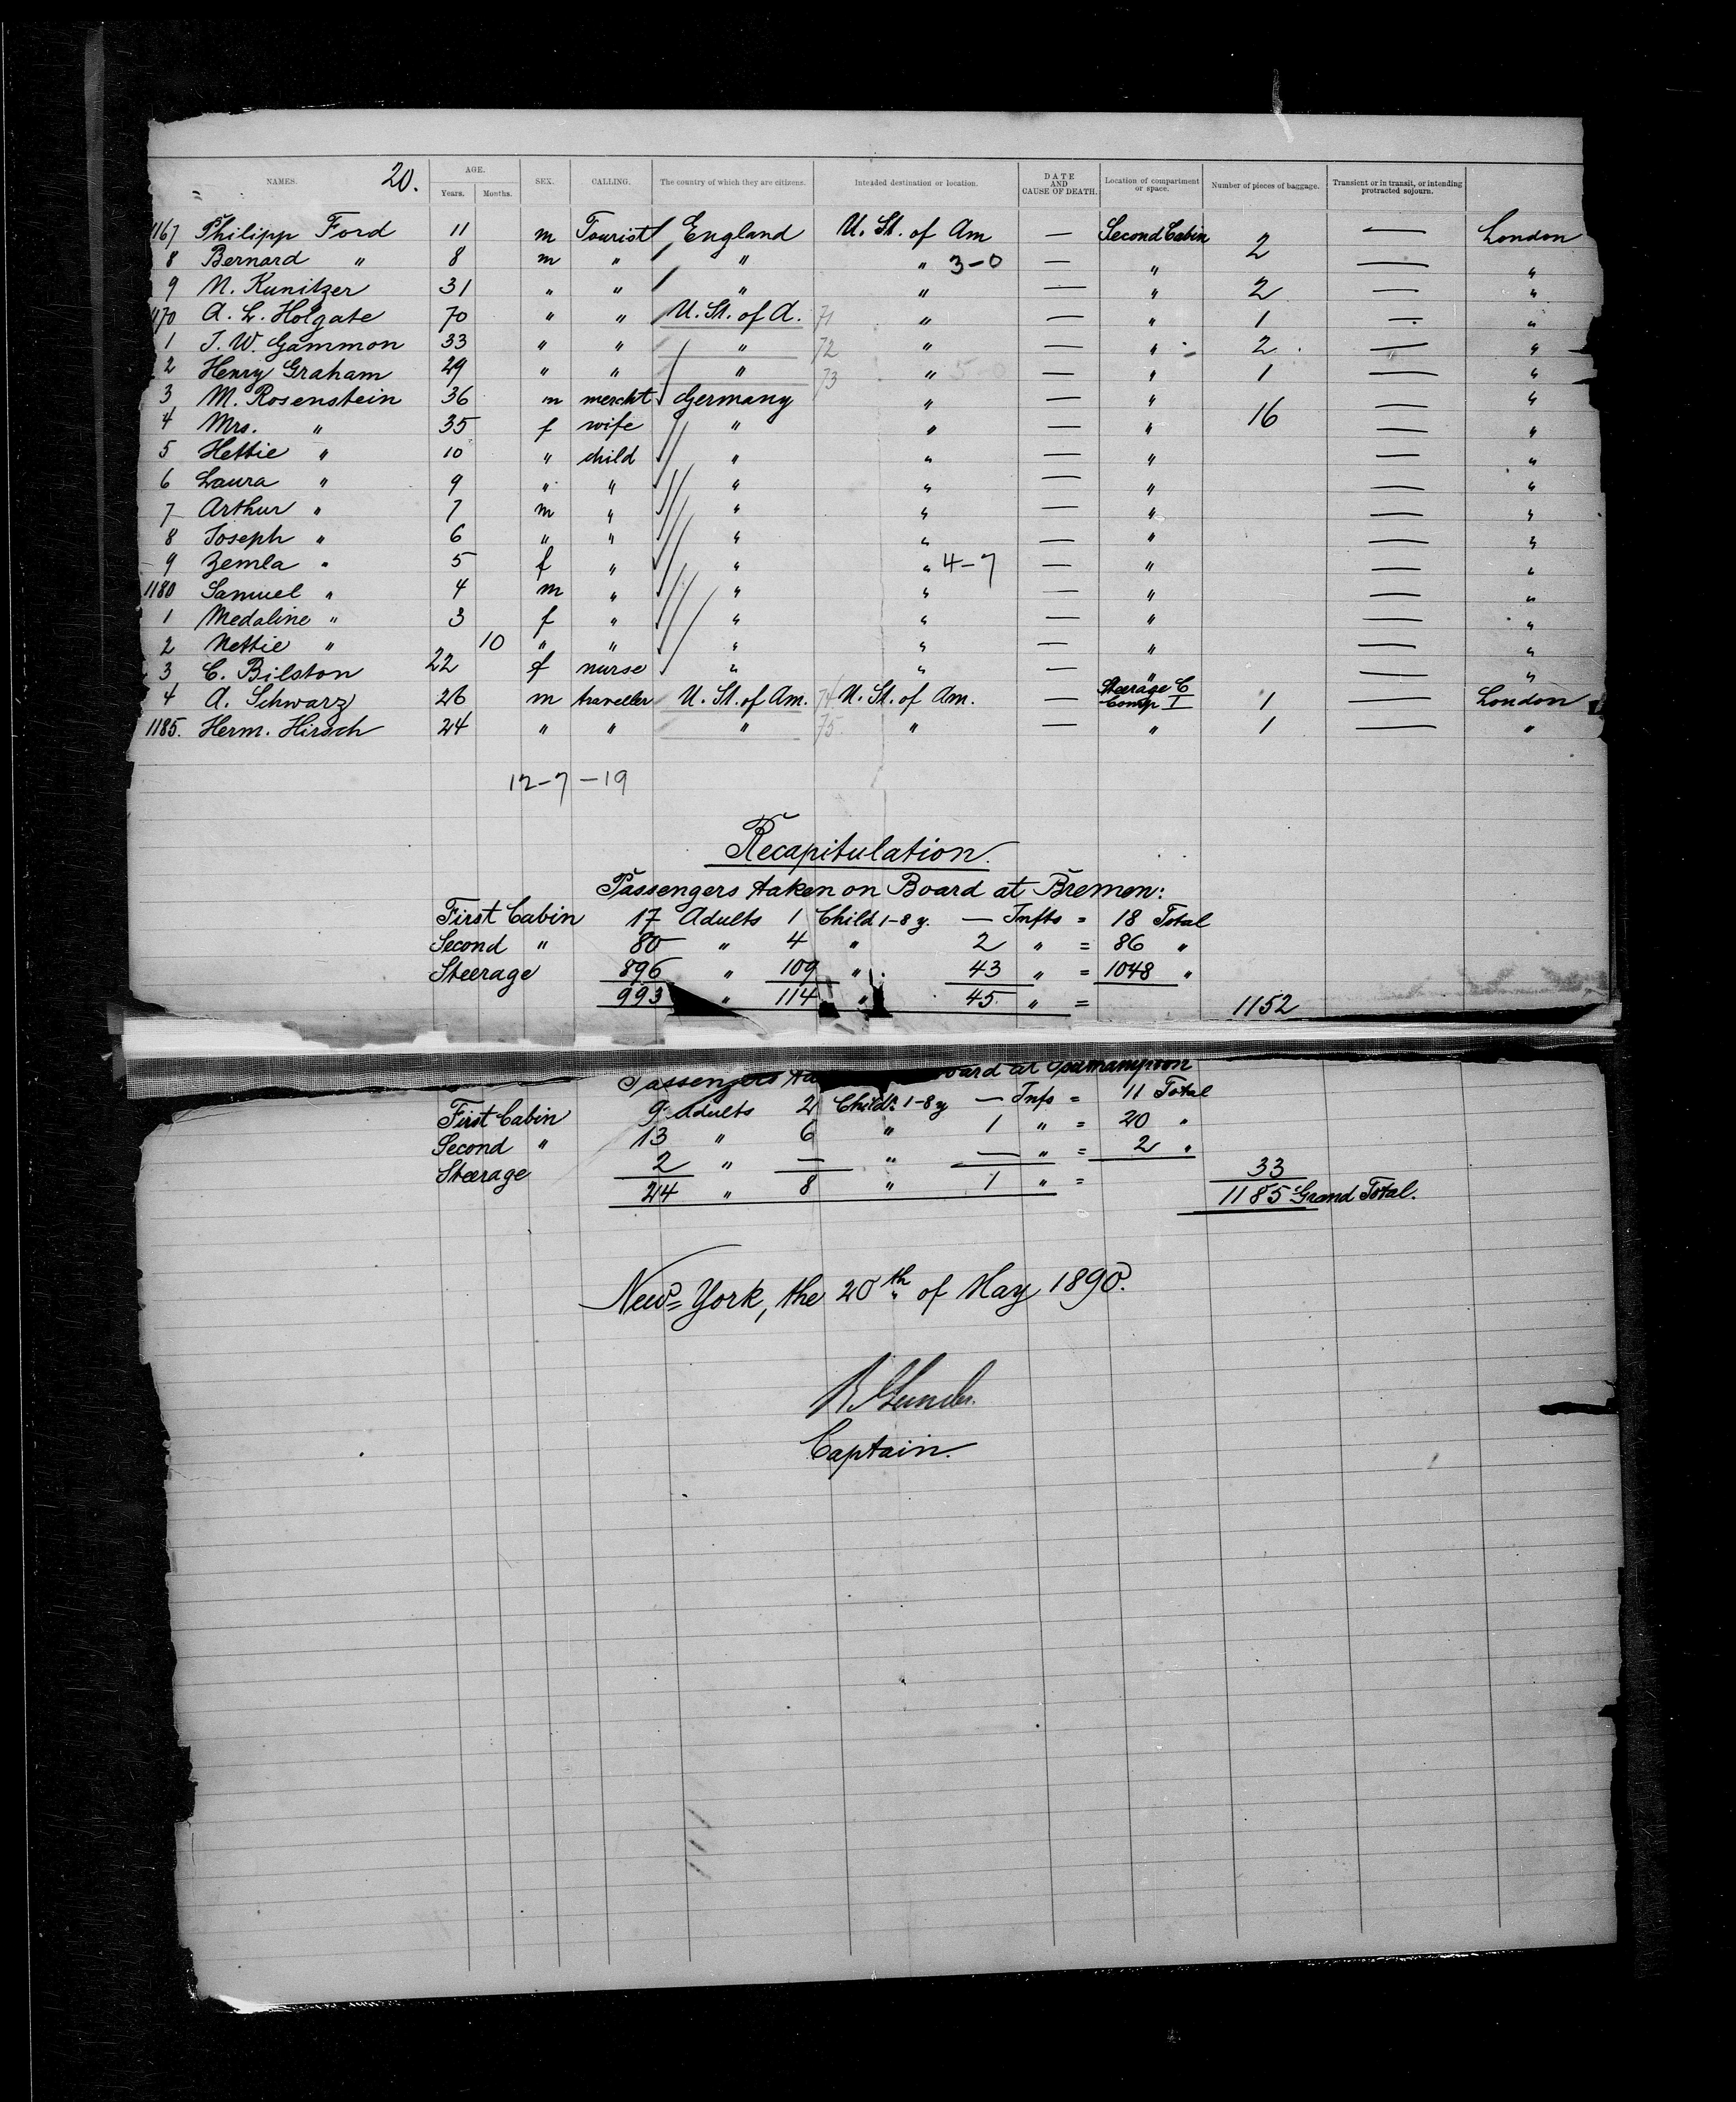 20.
NAMES. AGE. Years. Months. SEX. CALLING. The country of which they are citizens. Intended destination or location. DATE AND CAUSE OF DEATH. Location of compartment or space. Number of pieces of baggage. Transient or in transit, or intending protracted sojourn.
1167 Philipp Ford 11 m Tourist England U. St. of Am — Second Cabin 2 — London
8 Bernard " 8 m " " " 3-0 — " — "
9 N. Kunitzer 31 " " " " — " 2 — "
1170 A. L. Holgate 70 " " U. St. of A. 71 " — " 1 — "
1 J. W. Gammon 33 " " " 72 " — " 2 — "
2 Henry Graham 29 " " " 73 " — " 1 — "
3 M. Rosenstein 36 m mercht Germany " — " 16 — "
4 Mrs. " 35 f wife " " — " — "
5 Hettie " 10 " child " " — " — "
6 Laura " 9 " " " " — " — "
7 Arthur " 7 m " " " — " — "
8 Joseph " 6 " " " " — " — "
9 Zemla " 5 f " " " 4-7 — " — "
1180 Samuel " 4 m " " " — " — "
1 Medaline " 3 f " " " — " — "
2 Nettie " 10 " " " " — " — "
3 C. Bilston 22 f nurse " " — " — "
4 A. Schwarz 26 m traveller U. St. of Am. 74 U. St. of Am. — Steerage C Comp I 1 — London
1185. Herm. Hirsch 24 " " " 75. " — " 1 — "
12-7-19
Recapitulation.
Passengers taken on Board at Bremen:
First Cabin 17 Adults 1 Child 1-8 y. — Infts = 18 Total
Second " 80 " 4 " 2 " = 86 "
Steerage 896 " 109 " 43 " = 1048 "
993 " 114 " 45 " = 1152
Passengers board at
First Cabin 9 Adults 2 Childn 1-8 y — Infs = 11 Total
Second " 13 " 6 " 1 " = 20 "
Steerage 2 " — " — " = 2 "
24 " 8 " 1 " = 33
1185 Grand Total.
New-York, the 20th of May 1890.
Captain.